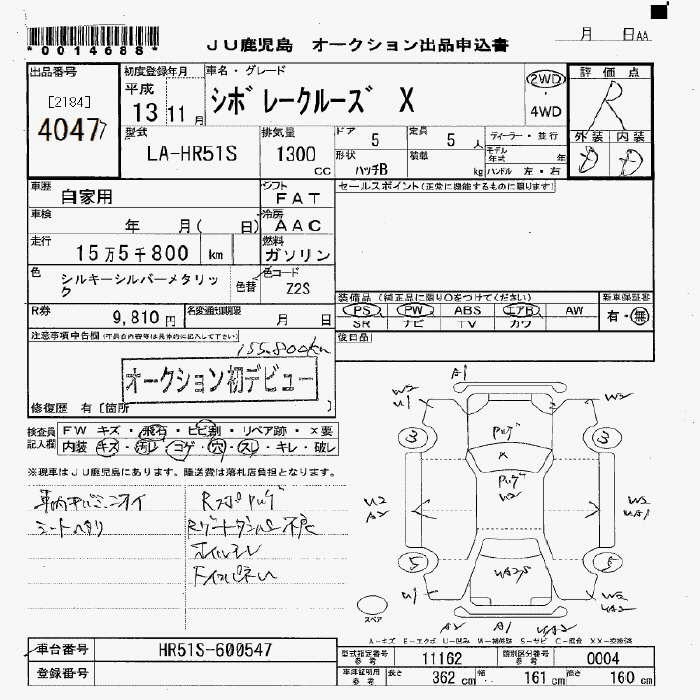 *0014688*
JU鹿児島 オークション出品申込書
月 日AA
出品番号
[2184]
4047
初度登録年月
平成
13 11月
車名・グレード
シボレークルーズ X
2WD
・
4WD
評価点
R
外装 内装
D D
型式
LA-HR51S
排気量
1300
CC
ドア 5
定員 5 人
形状 ハッチB
積載 kg
ディーラー・並行
モデル年式 年
ハンドル 左・右
車歴
自家用
シフト
FAT
セールスポイント(正常に機能するものに限ります)
車検
年 月( 日)
冷房
AAC
走行
15万5千800 km
燃料
ガソリン
色
シルキーシルバーメタリック
色替
色コード
Z2S
装備品(純正品に限り○をつけてください)
PS PW ABS エアB AW
SR ナビ TV カワ
新車保証書
有・無
R券
9,810円
名変通知期限
月 日
後日品
注意事項申告欄
155,800km
オークション初デビュー
修復歴 有[箇所 ]
検査員記入欄
FW キズ・飛石・ヒビ割・リペア跡・×要
内装 キズ・汚レ・コゲ・穴・スレ・キレ・破レ
※現車はJU鹿児島にあります。陸送費は落札店負担となります。
シートヘタリ
A1
W2
U1
W2
3
3
U2
A2
W2
UA1
5
5
U1
W2
UA2
A2
A1
UA2
スペア
A-キズ E-エクボ U-凹み W-補修跡 S-サビ C-腐食 XX-交換済
車台番号
HR51S-600547
登録番号
型式指定番号 参考
11162
類別区分番号 参考
0004
車庫証明用 参考
長さ 362 cm
幅 161 cm
高さ 160 cm